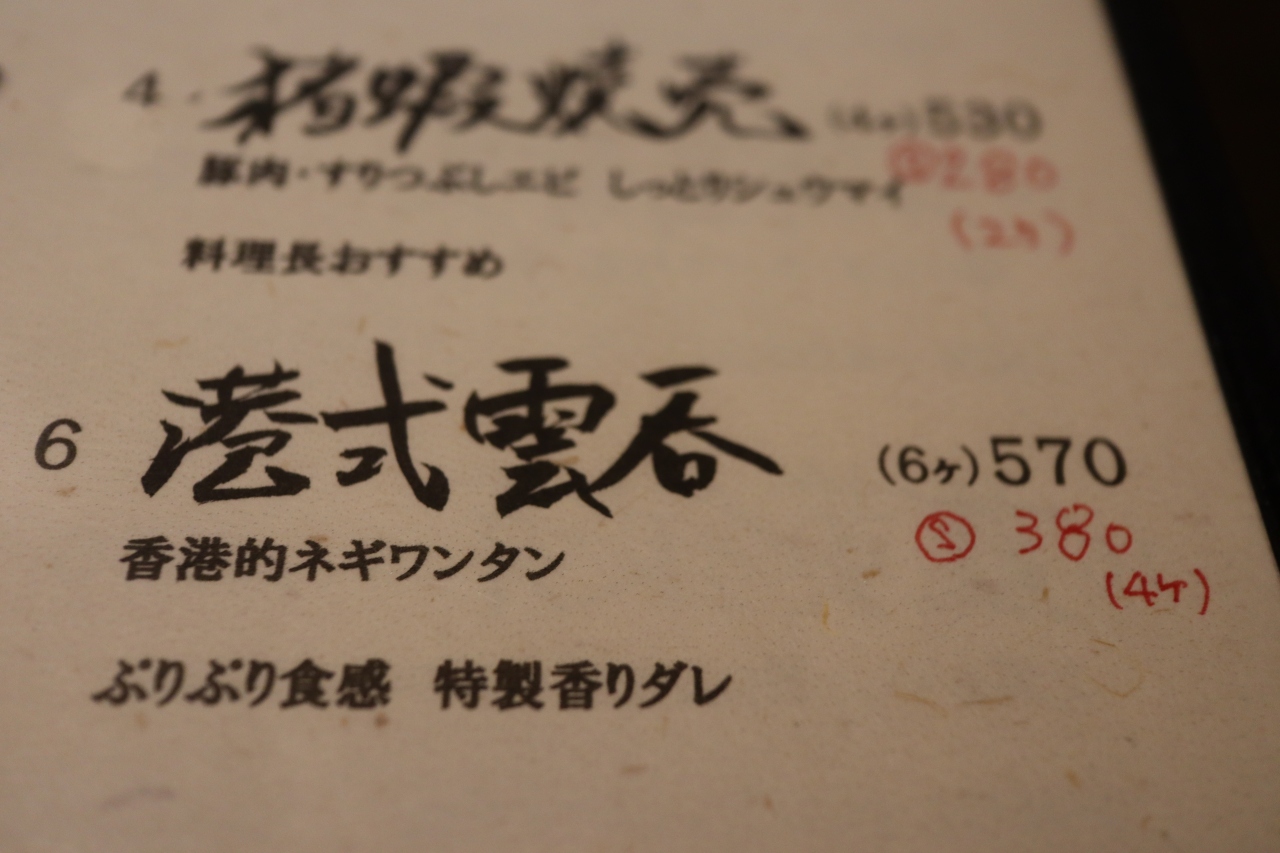 4. 猪蝦焼売 (4ヶ)530
豚肉・すりつぶしエビ しっとりシュウマイ
Ⓢ280
(2ヶ)
料理長おすすめ
6 港式雲呑 (6ヶ)570
Ⓢ 380
(4ヶ)
香港的ネギワンタン
ぷりぷり食感 特製香りダレ